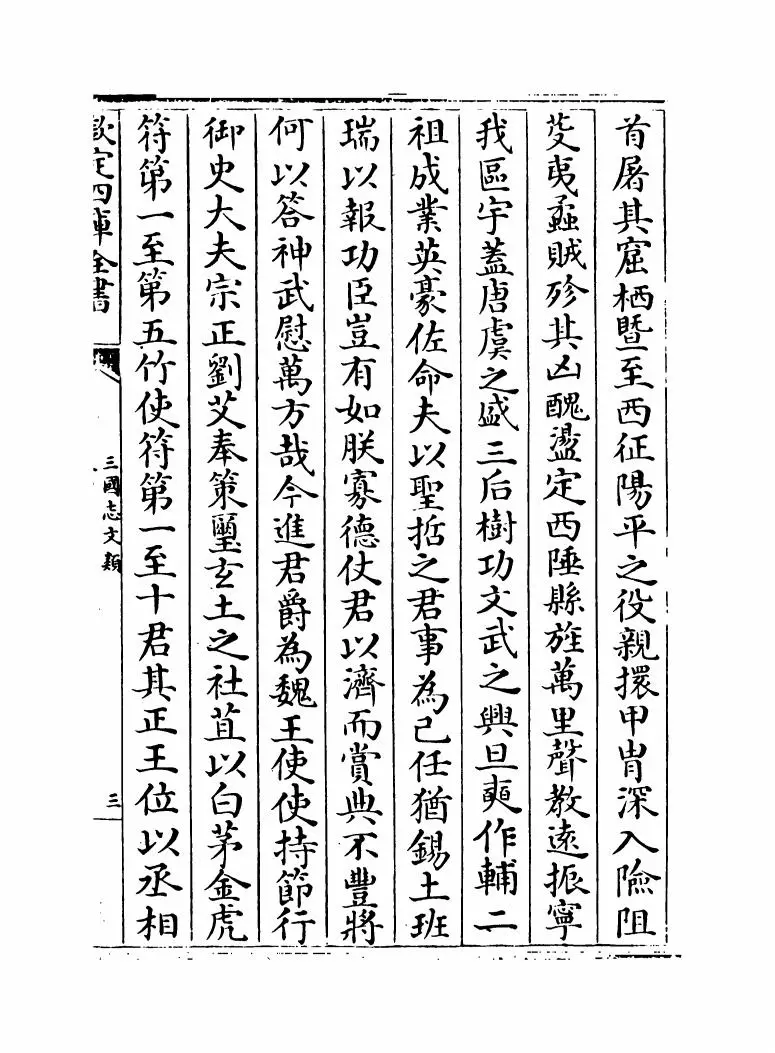 首屠其窟栖暨至西征陽平之役親擐甲胄深入險阻
芟夷蟊賊殄其凶醜盪定西陲縣旌萬里聲教遠振寧
我區宇蓋唐虞之盛三后樹功文武之興旦奭作輔二
祖成業英豪佐命夫以聖哲之君事為己任猶錫土班
瑞以報功臣豈有如朕寡德仗君以濟而賞典不豐將
何以答神武慰萬方哉今進君爵為魏王使使持節行
御史大夫宗正劉艾奉策璽玄土之社苴以白茅金虎
符第一至第五竹使符第一至十君其正王位以丞相
欽定四庫全書
三國志文類
三